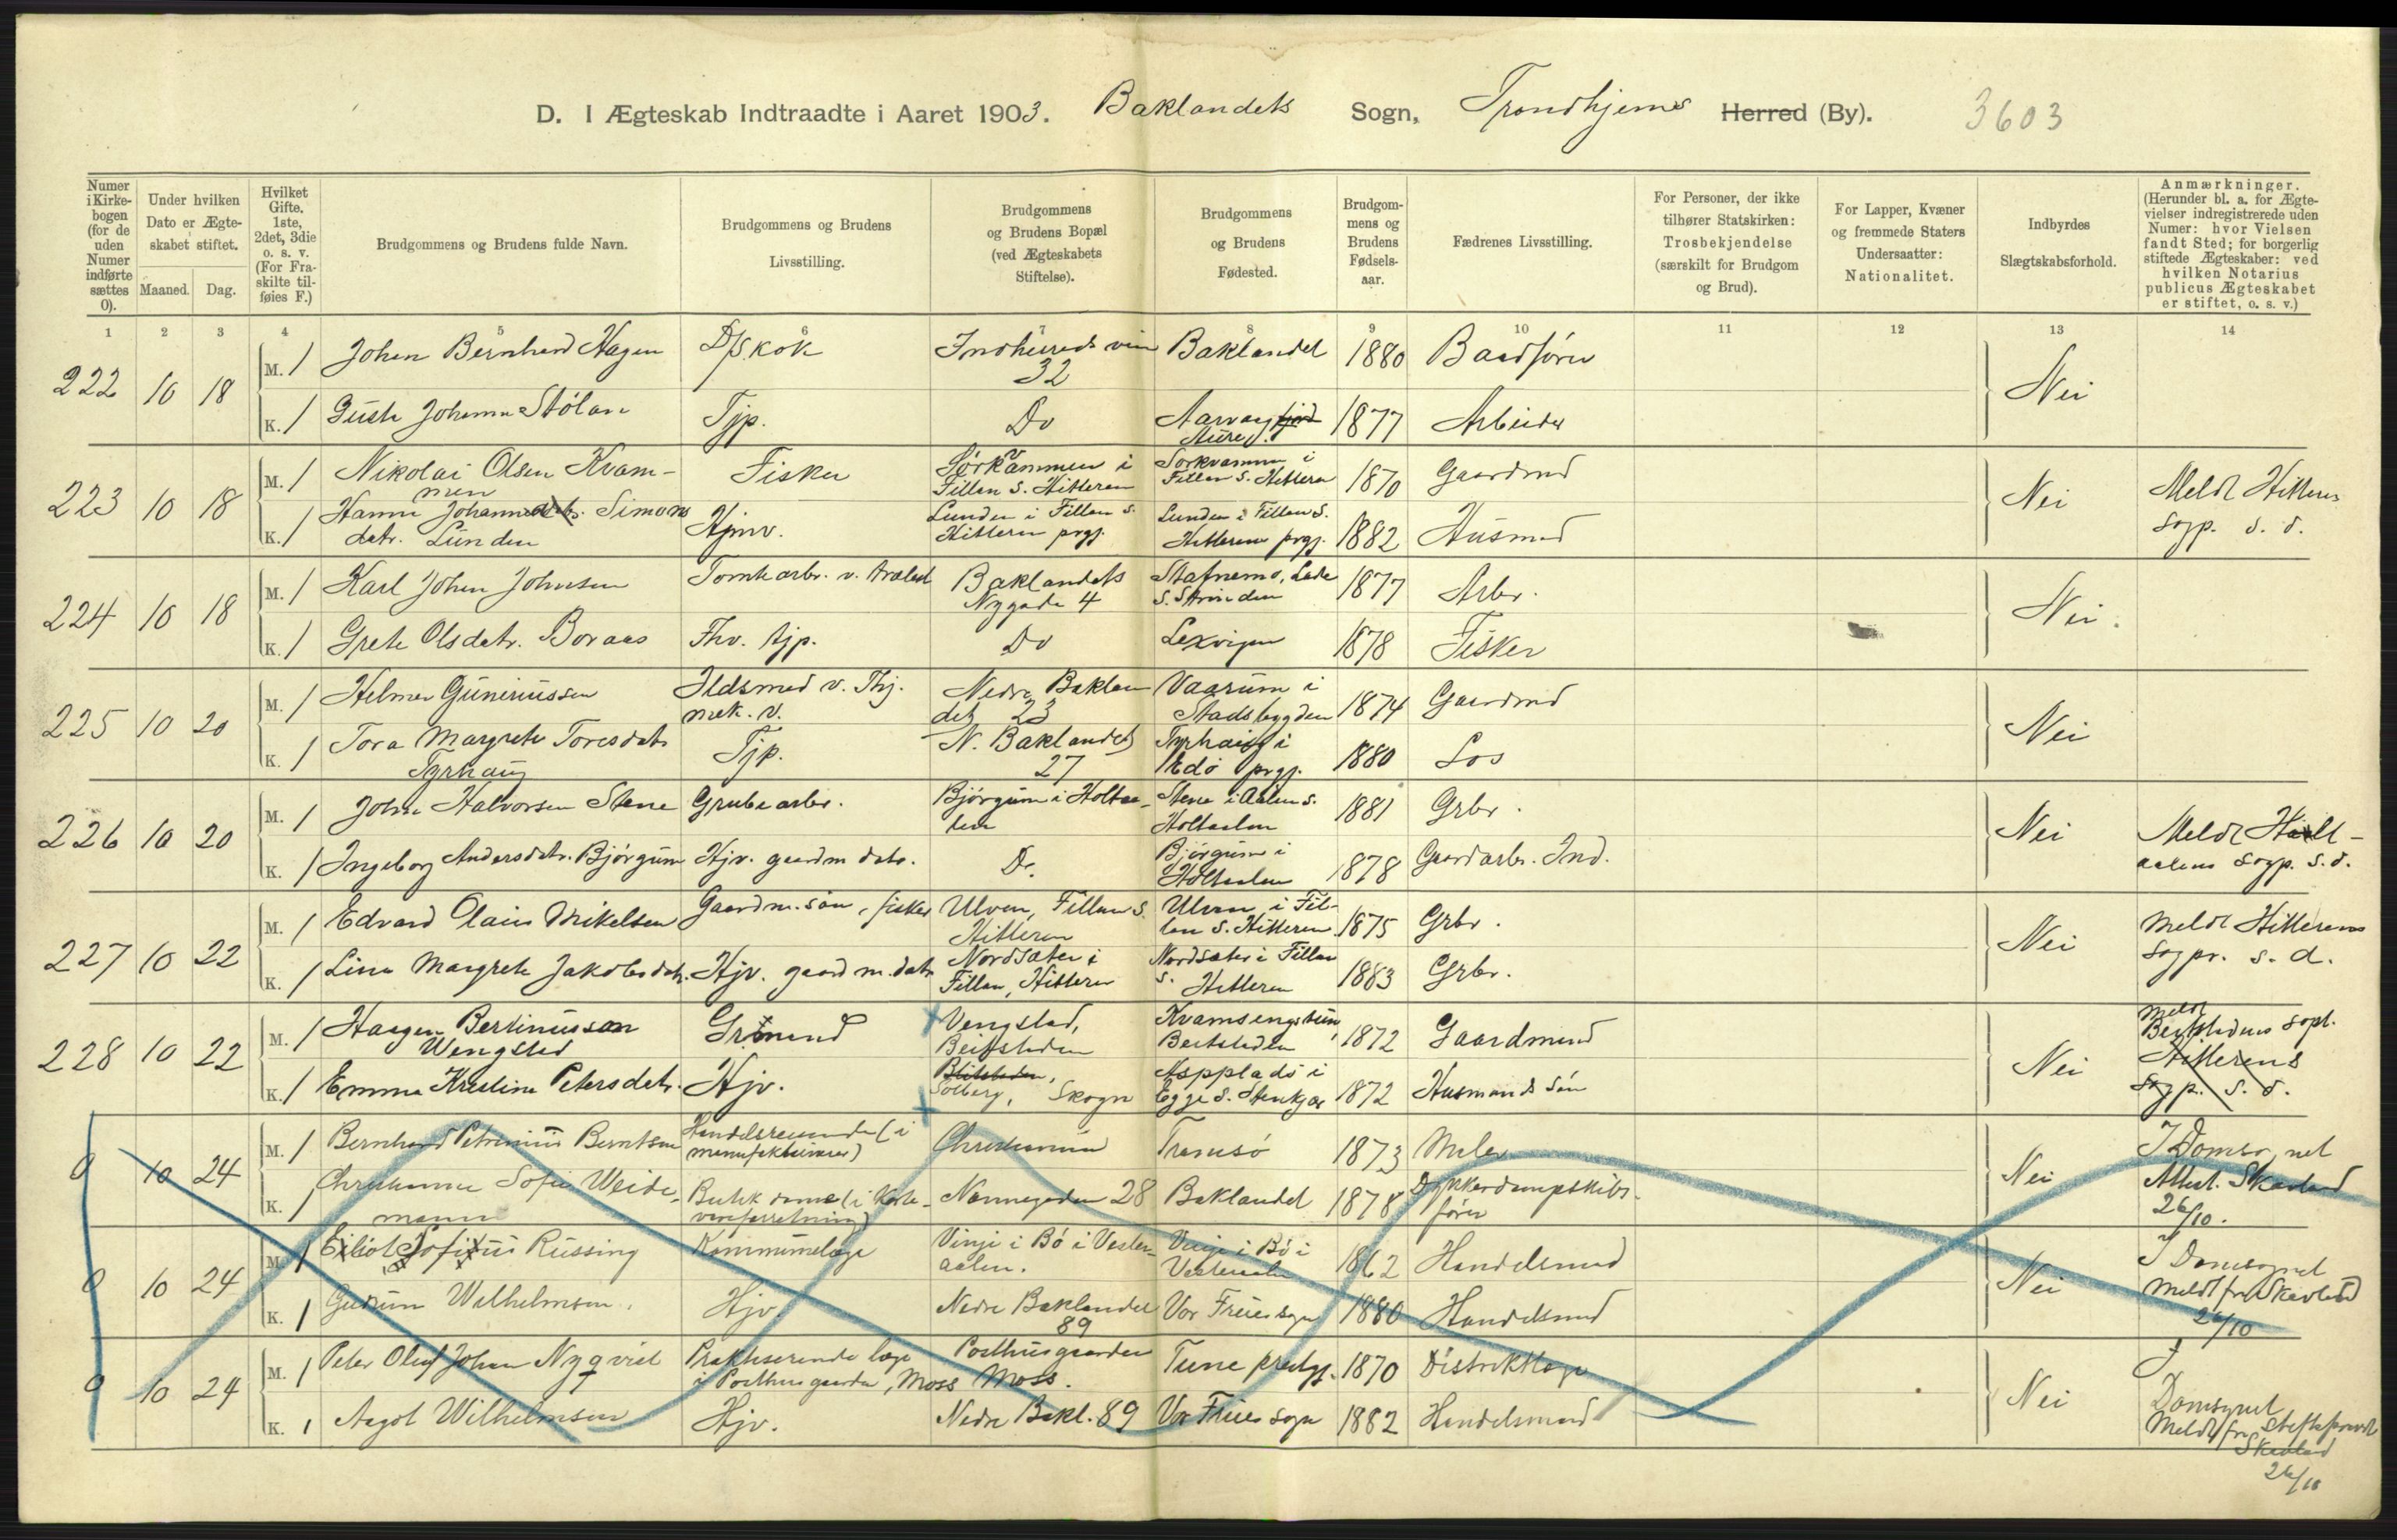 D. I Ægteskab Indtraadte i Aaret 1903. Baklandets Sogn, Trondhjems Herred (By). 3603
Numer i Kirkebogen (for de uden Numer indførte sættes 0).
Under hvilken Dato er Ægteskabet stiftet.
Maaned. Dag.
Hvilket Gifte. 1ste, 2det, 3die o. s. v. (For Fraskilte tilføies F.)
Brudgommens og Brudens fulde Navn.
Brudgommens og Brudens Livsstilling.
Brudgommens og Brudens Bopæl (ved Ægteskabets Stiftelse).
Brudgommens og Brudens Fødested.
Brudgommens og Brudens Fødselsaar.
Fædrenes Livsstilling.
For Personer, der ikke tilhører Statskirken: Trosbekjendelse (særskilt for Brudgom og Brud).
For Lapper, Kvæner og fremmede Staters Undersaatter: Nationalitet.
Indbyrdes Slægtskabsforhold.
Anmærkninger. (Herunder bl. a. for Ægtevielser indregistrerede uden Numer: hvor Vielsen fandt Sted; for borgerlig stiftede Ægteskaber: ved hvilken Notarius publicus Ægteskabet er stiftet, o. s. v.)
1 2 3 4 5 6 7 8 9 10 11 12 13 14
222 10 18 M. 1 Johan Bernhard Hagen D/S. kok Indherreds vein 32 Baklandet 1880 Baadfører Nei
K. 1 Johanna Stølan Tjp. Do Aure 1877 Arbeider
223 10 18 M. 1 Nikolai Olsen Kvammen Fisker Sørkvammen i Fillan S. Hitteren Sørkvammen i Fillan S. Hitteren 1870 Gaardmd Nei Meldt Hitterens Sogp. s. d.
K. 1 Hanna Simonsdatr. Lunden Hjmv. Lunden i Fillan S. Hitteren prgj. Lunden i Fillan S. Hitteren prgj. 1882 Husmd
224 10 18 M. 1 Karl Johan Johnsen Tomtearbr. v. trælast Baklandets Nygade 4 Stafnemo, Lade S. Strinden 1877 Arbr. Nei.
K. 1 Grete Olsdatr. Boraas Fhv. tjp. Do Lexvigen 1878 Fisker
225 10 20 M. 1 Helmer Guneriussen Ildsmed v. Thj. mek. v. Nedre Baklandet 23 Vaarum i Stadsbygden 1874 Gaardmd Nei
K. 1 Tora Margrete Toresdatr Tyrhaug Tjp. N. Baklandet 27 Tyrhaug i Edø prgj. 1880 Los
226 10 20 M. 1 John Halvorsen Stene Grubearbr. Bjørgum i Holtaalen Stene i Aalens S. Holtaalen 1881 Grbr. Nei Meldt Holtaalens Sogp. s. d.
K. 1 Ingeborg Andersdatr. Bjørgum Hjv. gaardm datr. Do. Bjørgum i Holtaalen 1878 Gaardarbr. Ind.
227 10 22 M. 1 Edvard Olaus Mikelsen Gaardm. søn, fisker Ulven, Fillan S. Hitteren Ulven i Fillan S. Hitteren 1875 Grbr. Nei Meldt Hitterens Sogpr. s. d.
K. 1 Lina Margrete Jakobsdatr. Hjv. gaardm. datr Nordsæter i Fillan, Hitteren Nordsæter i Fillan S. Hitteren 1883 Grbr.
228 10 22 M. 1 Haagen Bertinussen Wengstad Grdmand Vengstad, Beitstaden Beitstaden 1872 Gaardmand Nei Meldt Beitstadens sopr. Hitterens Sogp. s. d.
K. 1 Emma Kristine Petersdatr. Hjv. Beitstaden, Solberg, Skogn Aspplads i Egge S. Stenkjær 1872 Husmands søn
0 10 24 M. 1 Bernhard Petrenius Berntsen Handelsreisende (i manufakturvarer) Christiania Tromsø 1873 Maler Nei I Domsognet Attest. Skavland 26/10.
K. 1 Christianna Sofie Weidemann Butikdame (i Nonnegaden 28 Baklandet 1878 Dykkerdampskibsfører
0 10 24 M. 1 Eiliot Sofus Russing Kommunelæge Vinje i Bø i Vesteraalen. Vinje i Bø i Vesteraalen 1862 Handelsmd Nei I Domsognet Meldt fra Skavland 26/10
K. 1 Gudrun Wilhelmsen. Hjv. Nedre Baklandet 89 Vor Frues sogn 1880 Handelsmd
0 10 24 M. 1 Peter Oluf Johan Nyqvist Praktiserende læge i Posthusgaarden, Moss Posthusgaarden Moss. Tune prestgj. 1870 Distriktlæge Nei I Domsognet Meldt fra Stiftsprovst Skavland 26/10
K. 1 Aagot Wilhelmsen Hjv. Nedre Bakl. 89 Vor Frues sogn 1882 Handelsmand